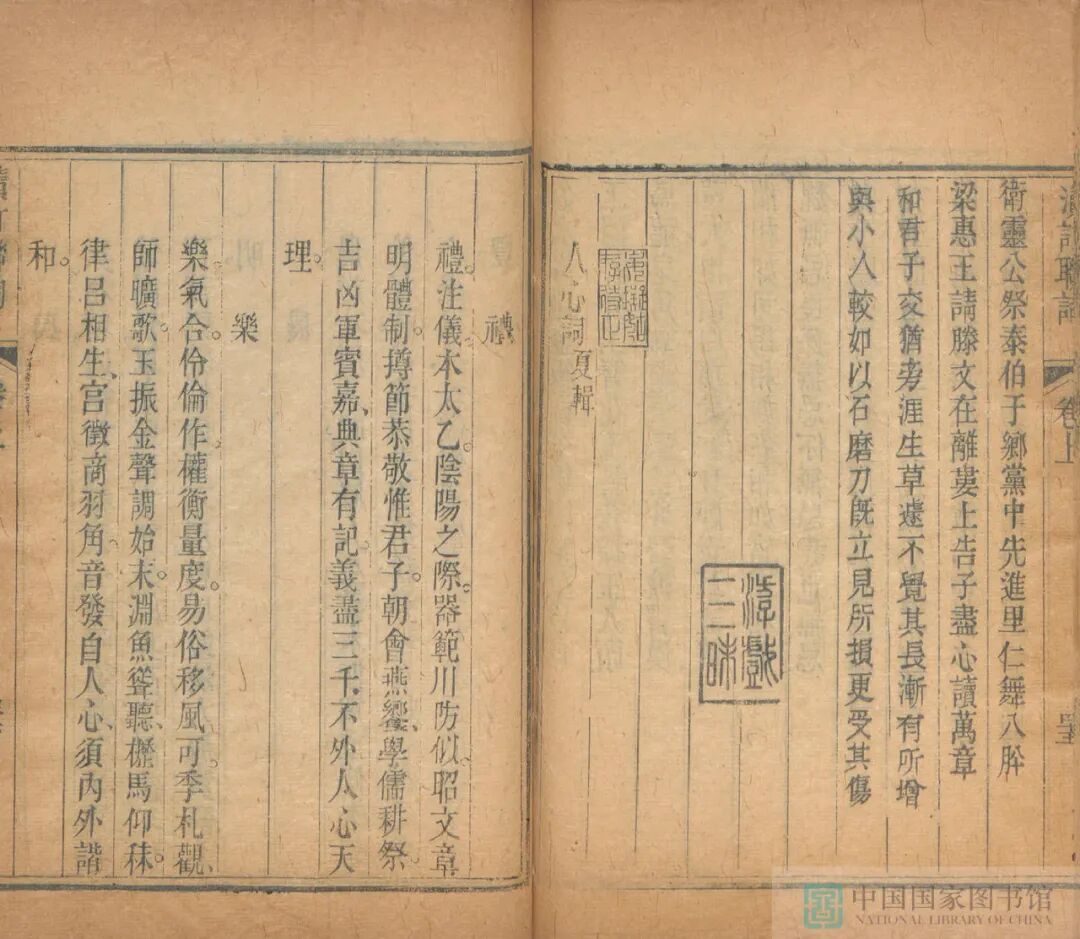 卷上
衛靈公祭泰伯于鄉黨中先進里仁舞八脌
梁惠王請滕文在離婁上告子盡心讀萬章
和君子交猶旁涯生草遠不覺其長漸有所增
與小人較如以石磨刀旣立見所損更受其傷
游戲三昧
人心詞夏輯
禮
禮。注儀本太乙。陰陽之際。器範川防似。昭文章
明體制。撙節恭敬惟君子。朝會燕饗、學儒耕祭。
吉凶軍賓嘉、典章有記。義盡三千、不外人心天
理。
樂
樂。氣合。伶倫作。權衡量度。易俗移風可。季札觀、
師曠歌。玉振金聲調始末。淵魚聳聽、櫪馬仰秣。
律呂相生、宮徵商羽角。音發自人心、須內外諧
和。
中国国家图书馆
NATIONAL LIBRARY OF CHINA